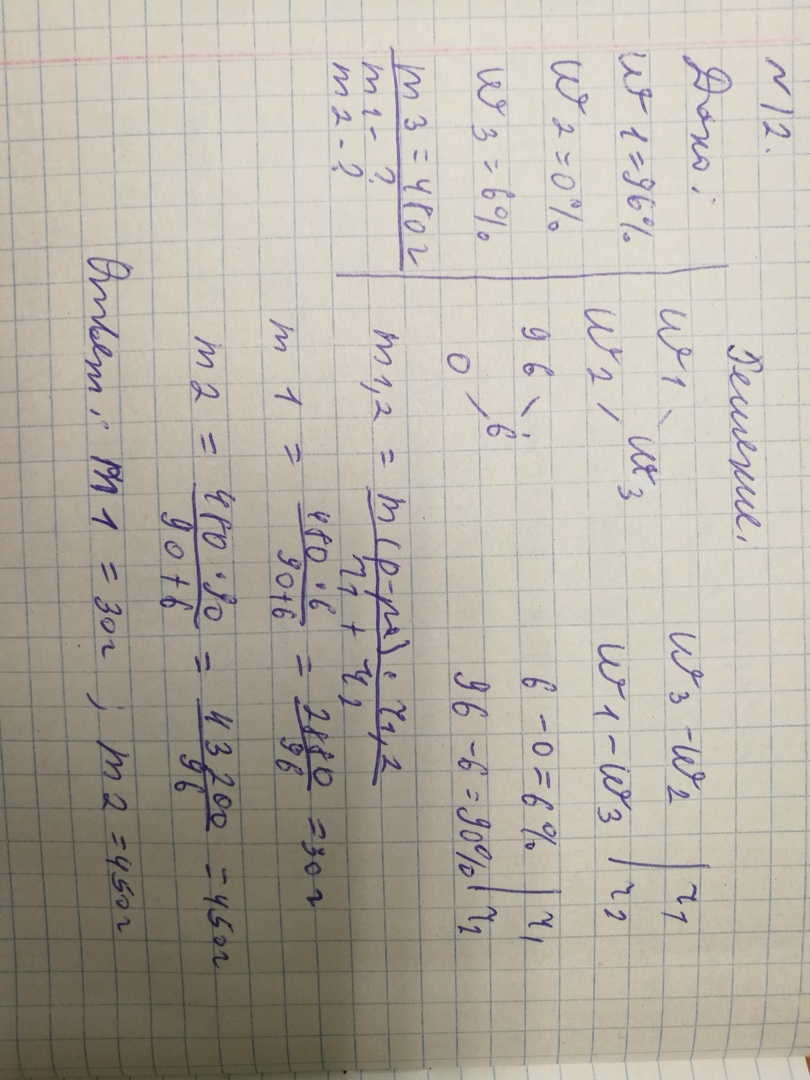 N 12.
Дано:
W1 = 96%
W2 = 0%
W3 = 6%
m3 = 480г
m1 - ?
m2 - ?
Решение:
W1 \ W3 - W2 | r1
W3
W2 / W1 - W3 | r2
96 \ 6 - 0 = 6% | r1
6
0 / 96 - 6 = 90% | r2
m1,2 = m(р-ра) · r1,2 / r1 + r2
m1 = 480 · 6 / 90+6 = 2880 / 96 = 30г
m2 = 480 · 90 / 90+6 = 43200 / 96 = 450г
Ответ: m1 = 30г ; m2 = 450г